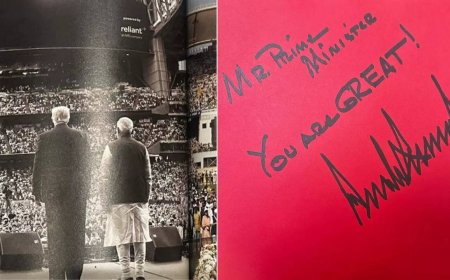 powered by
reliant
MR. PRIME
MINISTER
YOU ARE GREAT!